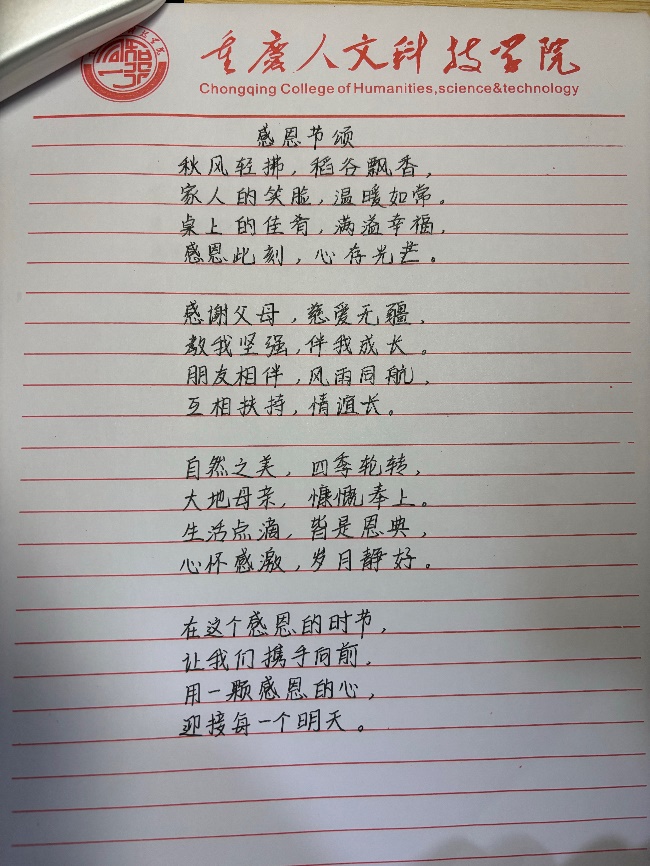 重庆人文科技学院
Chongqing College of Humanities,science&technology
感恩节颂
秋风轻拂，稻谷飘香，
家人的笑脸，温暖如常。
桌上的佳肴，满溢幸福，
感恩此刻，心存光芒。
感谢父母，慈爱无疆，
教我坚强，伴我成长。
朋友相伴，风雨同航，
互相扶持，情谊长。
自然之美，四季轮转，
大地母亲，慷慨奉上。
生活点滴，皆是恩典，
心怀感激，岁月静好。
在这个感恩的时节，
让我们携手向前，
用一颗感恩的心，
迎接每一个明天。